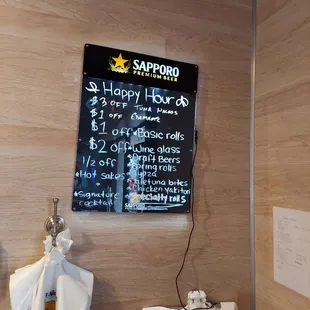 SAPPORO
PREMIUM BEER
Happy Hour
$3 OFF Tuna Nachos
$1 OFF Edamame
$1 off • Basic rolls
$2 off • Wine glass
• Draft Beers
1/2 off • Spring rolls
• Hot sakes • Gyoza
tuna bites
• Signature chicken yakitori
cocktail Specialty rolls